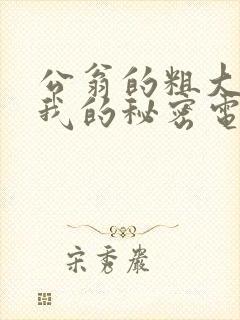 公翁的粗大
我的秘密電
宋秀巖